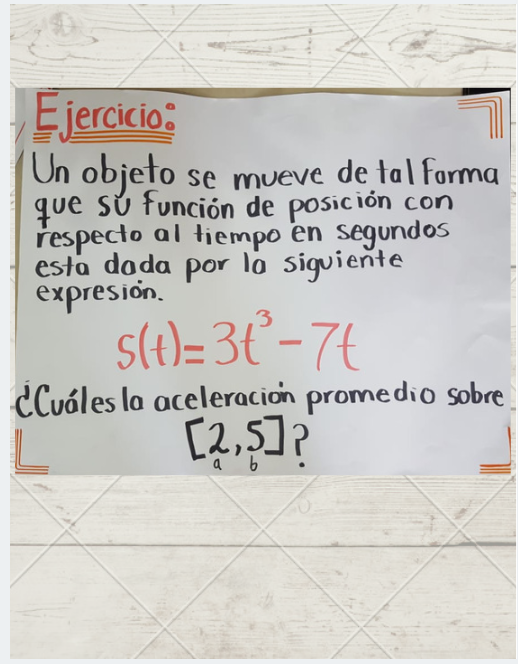 Ejercicio:
Un objeto se mueve de tal forma
que su función de posición con
respecto al tiempo en segundos
esta dada por la siguiente
expresión.
s(t)=3t³-7t
¿Cuál es la aceleración promedio sobre
[2,5]?
a b